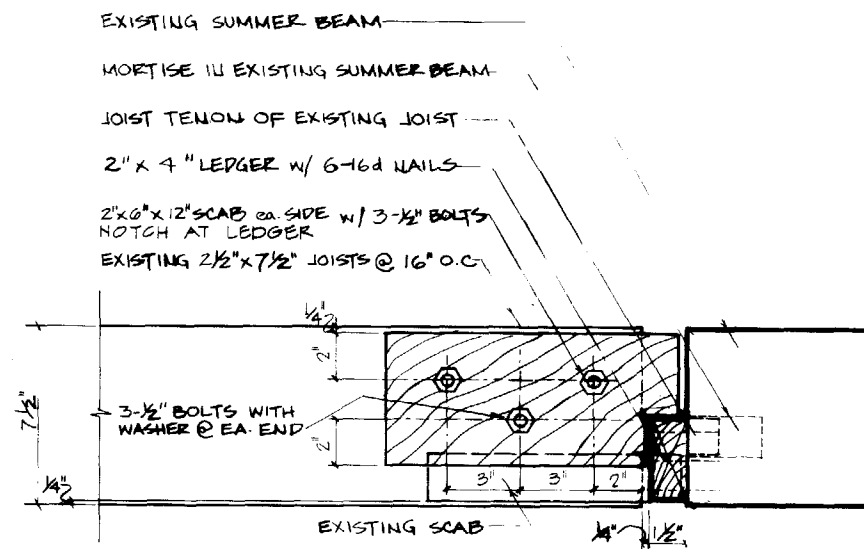 EXISTING SUMMER BEAM
MORTISE IN EXISTING SUMMER BEAM
JOIST TENON OF EXISTING JOIST
2" x 4" LEDGER w/ 6-16d NAILS
2"x6"x12" SCAB ea. SIDE w/ 3-1/2" BOLTS
NOTCH AT LEDGER
EXISTING 2 1/2" x 7 1/2" JOISTS @ 16" O.C.
1/4"
2"
7 1/2"
3-1/2" BOLTS WITH
WASHER @ EA. END
2"
1/4"
3" 3" 2"
EXISTING SCAB
1/4" 1 1/2"